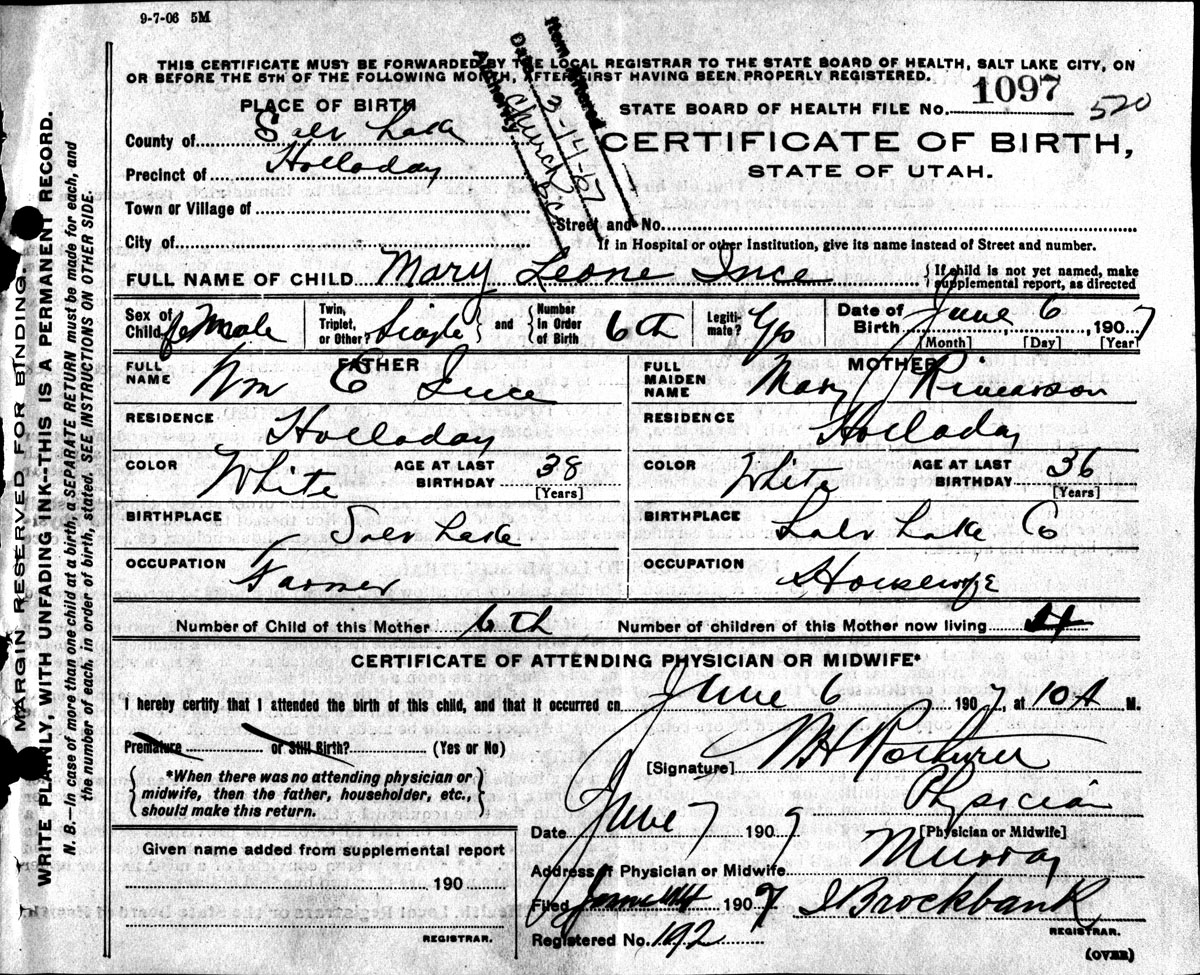 9-7-06 5M
THIS CERTIFICATE MUST BE FORWARDED BY THE LOCAL REGISTRAR TO THE STATE BOARD OF HEALTH, SALT LAKE CITY, ON
OR BEFORE THE 5TH OF THE FOLLOWING MONTH, AFTER FIRST HAVING BEEN PROPERLY REGISTERED.
Item Entered
Date 3-14-67
Authority Church
PLACE OF BIRTH
STATE BOARD OF HEALTH FILE No. 1097 520
County of Salt Lake
CERTIFICATE OF BIRTH,
Precinct of Holladay
STATE OF UTAH.
Town or Village of
Street and No.
City of
If in Hospital or other Institution, give its name instead of Street and number.
FULL NAME OF CHILD Mary Leone Ince
{If child is not yet named, make supplemental report, as directed
Sex of Child feMale
Twin, Triplet, or Other? Single } and { Number in Order of Birth 6th
Legitimate? Yes
Date of Birth June 6, 1907
[Month] [Day] [Year]
FATHER
FULL NAME Wm C Ince
RESIDENCE Holladay
COLOR White AGE AT LAST BIRTHDAY 38
[Years]
BIRTHPLACE Salt Lake
OCCUPATION Farmer
MOTHER
FULL MAIDEN NAME Mary J
RESIDENCE Holladay
COLOR White AGE AT LAST BIRTHDAY 36
[Years]
BIRTHPLACE Salt Lake Co
OCCUPATION Housewife
Number of Child of this Mother 6th Number of children of this Mother now living 4
CERTIFICATE OF ATTENDING PHYSICIAN OR MIDWIFE*
I hereby certify that I attended the birth of this child, and that it occurred on June 6 1907, at 10 A M.
Premature or Still Birth? (Yes or No)
[Signature]
{*When there was no attending physician or
midwife, then the father, householder, etc.,
should make this return.}
Physician
Date June 7 1907
[Physician or Midwife]
Address of Physician or Midwife Murray
Given name added from supplemental report
190
REGISTRAR.
Filed June 1907 Brockbank
REGISTRAR.
Registered No. 192
(OVER)
MARGIN RESERVED FOR BINDING.
WRITE PLAINLY, WITH UNFADING INK--THIS IS A PERMANENT RECORD.
N. B.—In case of more than one child at a birth, a SEPARATE RETURN must be made for each, and
the number of each, in order of birth, stated. SEE INSTRUCTIONS ON OTHER SIDE.